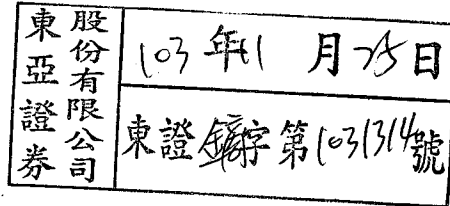 東亞證券
股份有限公司
103年11月25日
東證字第1031314號